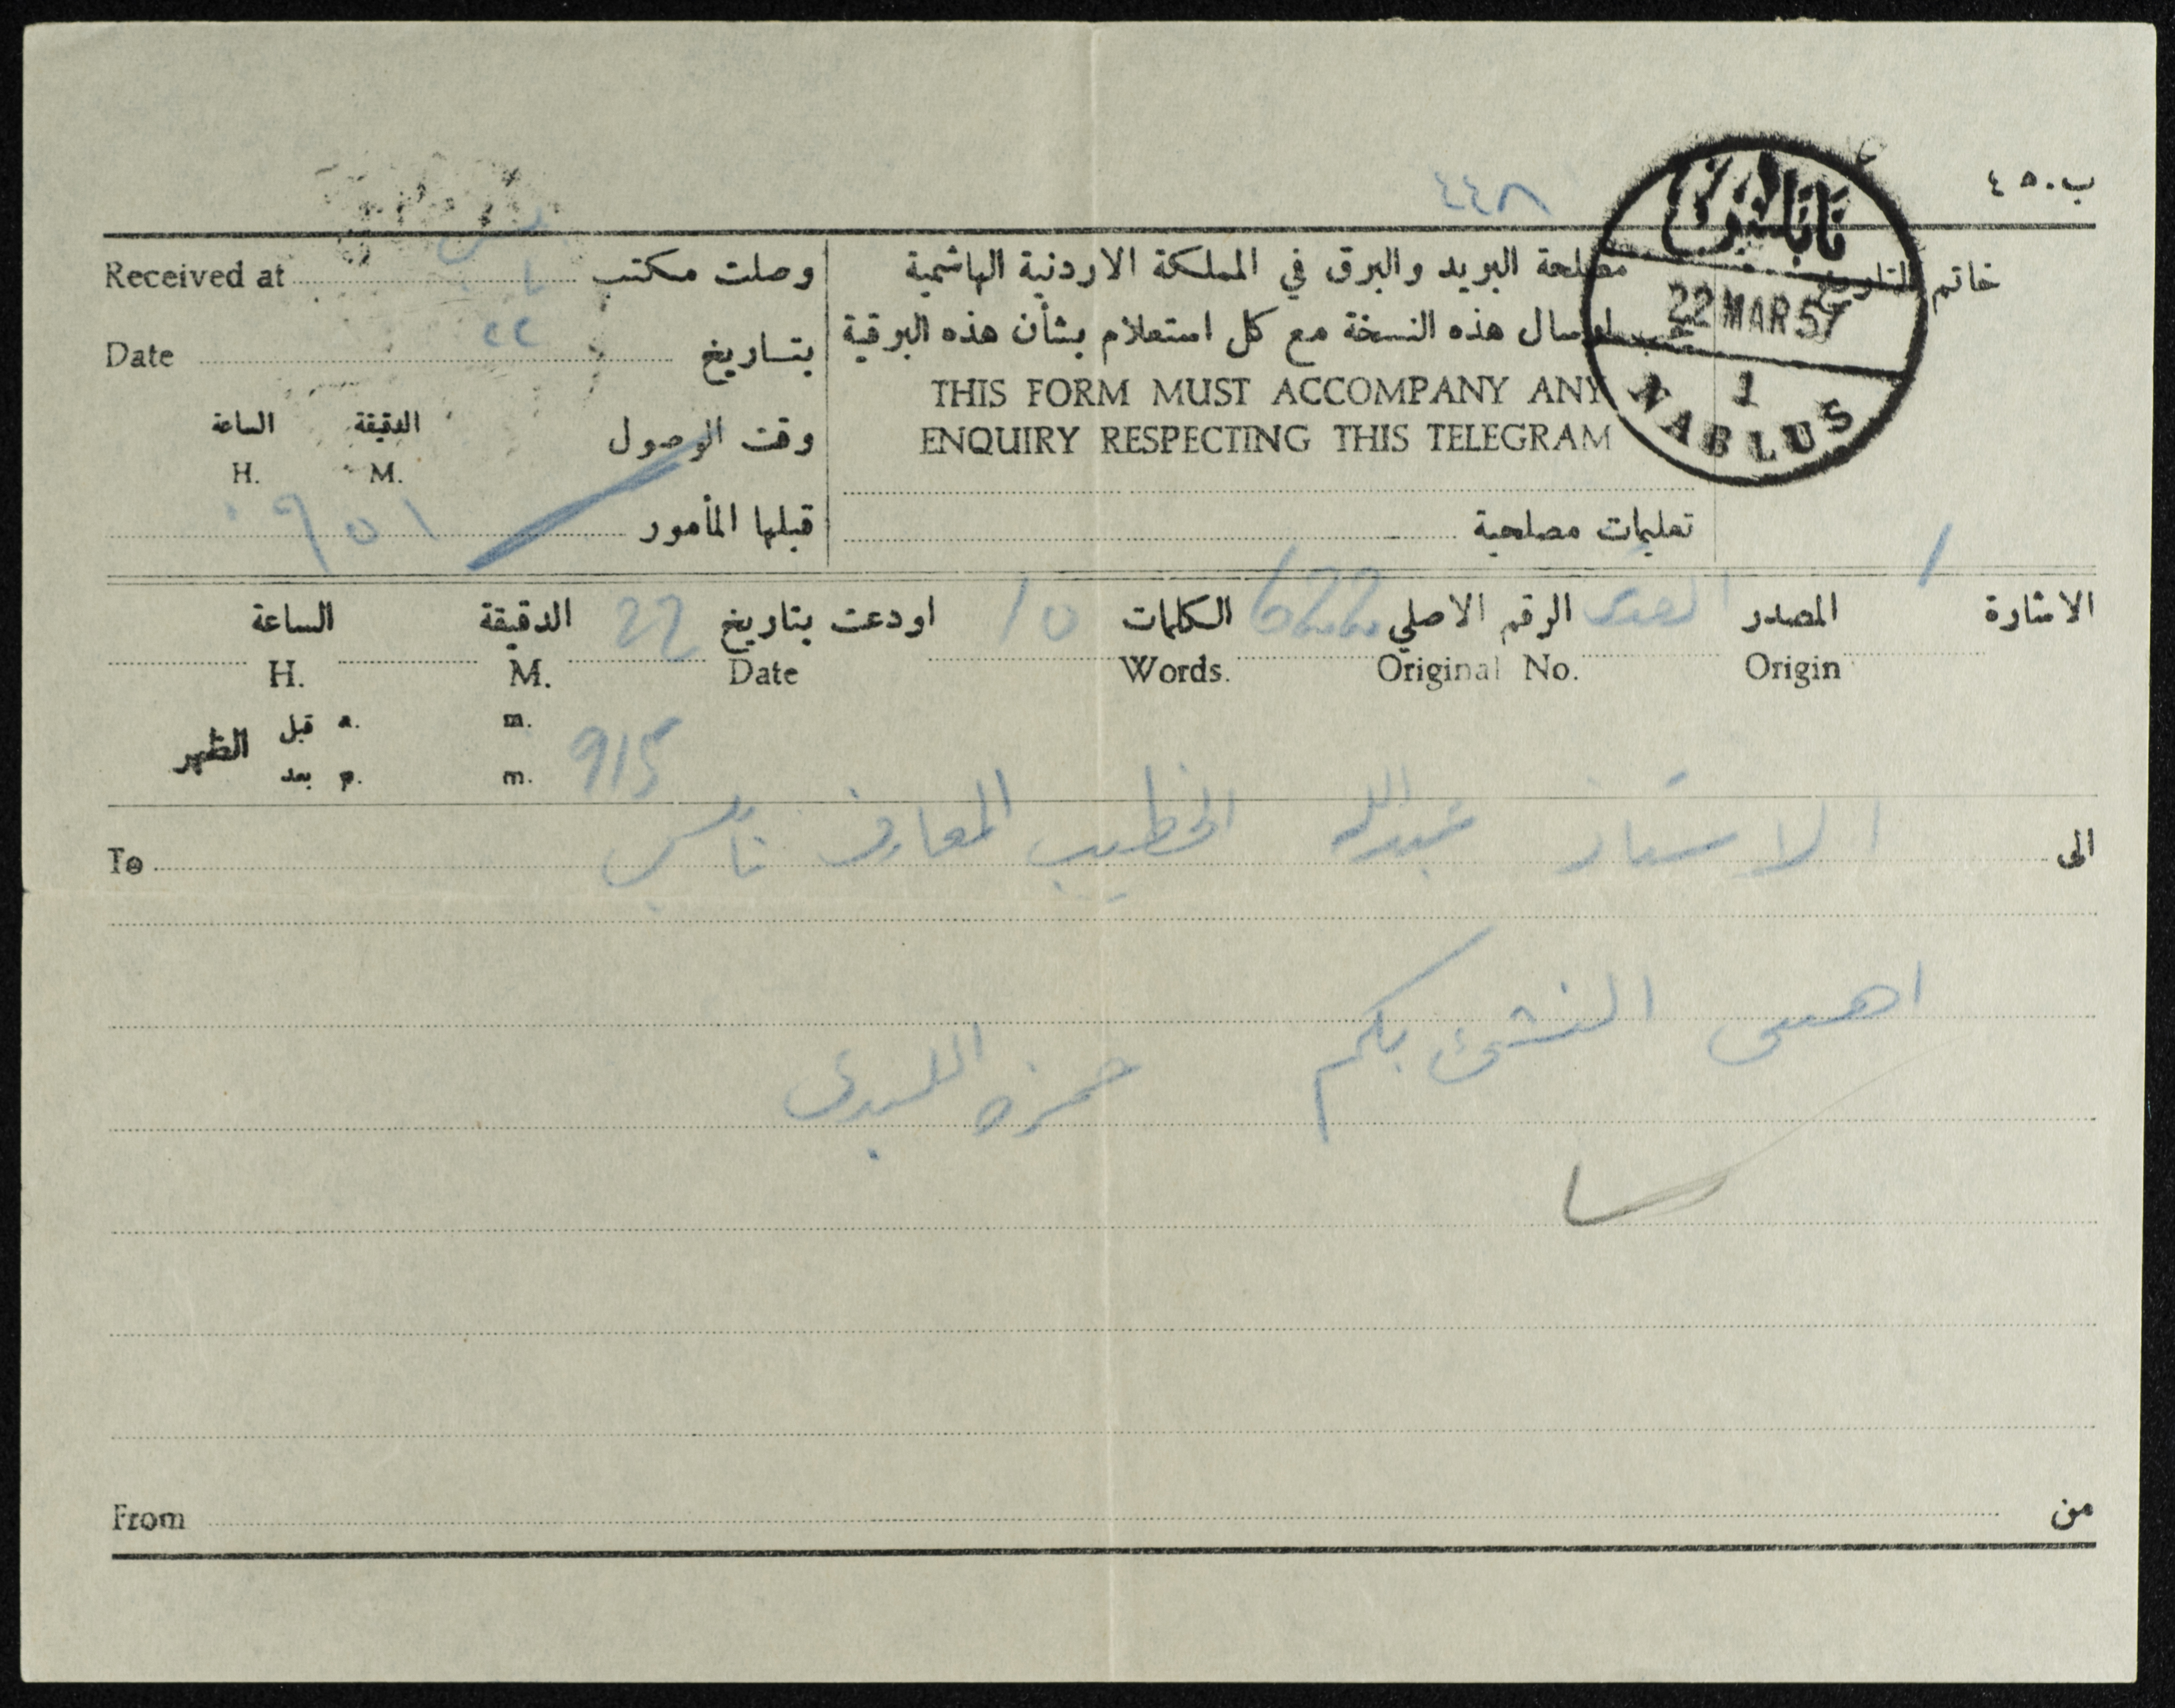 ب.٤٥
٤٤٨
نابلس
22 MAR 57
1
NABLUS
خاتم التاريخ
مصلحة البريد والبرق في المملكة الاردنية الهاشمية
يجب ارسال هذه النسخة مع كل استعلام بشأن هذه البرقية
THIS FORM MUST ACCOMPANY ANY
ENQUIRY RESPECTING THIS TELEGRAM
تعليمات مصلحية
وصلت مكتب نابلس Received at
بتاريخ ٢٢ Date
وقت الوصول الدقيقة الساعة
H. M.
قبلها المأمور
الاشارة المصدر القدس الرقم الاصلي الكلمات اودعت بتاريخ 22 الدقيقة الساعة
Origin Original No. Words. Date M. H.
قبل a. m.
الظهر
بعد p. m.
915
الى الاستاذ عبدالله الخطيب المعارف نابلس To
اهنئ النشئ بكم حمزه اللبدي
من From